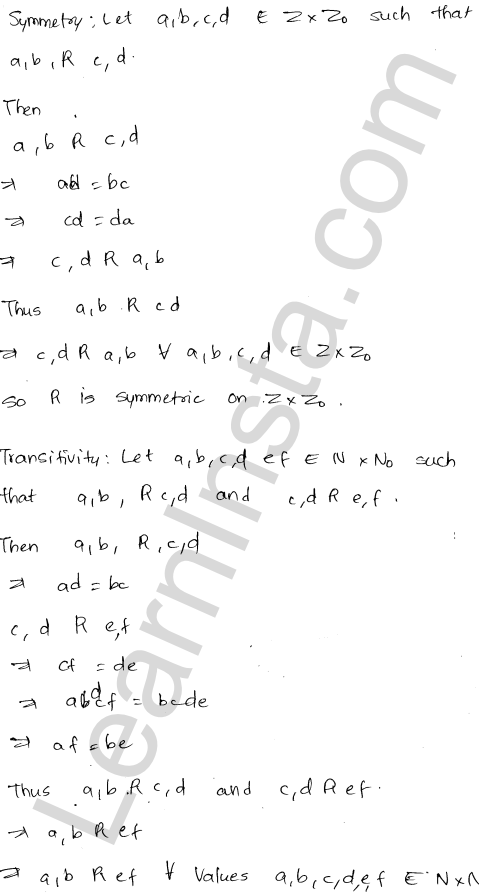 Symmetry: Let a,b,c,d ∈ Z×Z₀ such that
a,b, R c,d.
Then
a,b R c,d
⇒ ad = bc
⇒ cd = da
⇒ c,d R a,b
Thus a,b R cd
⇒ c,d R a,b ∀ a,b,c,d ∈ Z×Z₀
So R is symmetric on Z×Z₀.
Transitivity: Let a,b,c,d ef ∈ N×N₀ such
that a,b, R c,d and c,d R e,f.
Then a,b, R,c,d
⇒ ad = bc
c,d R e,f
⇒ cf = de
⇒ adcf = bcde
⇒ af = be
Thus a,b R c,d and c,d R ef.
⇒ a,b R ef
⇒ a,b R ef ∀ Values a,b,c,d,e,f ∈ N×N
LearnInsta.com